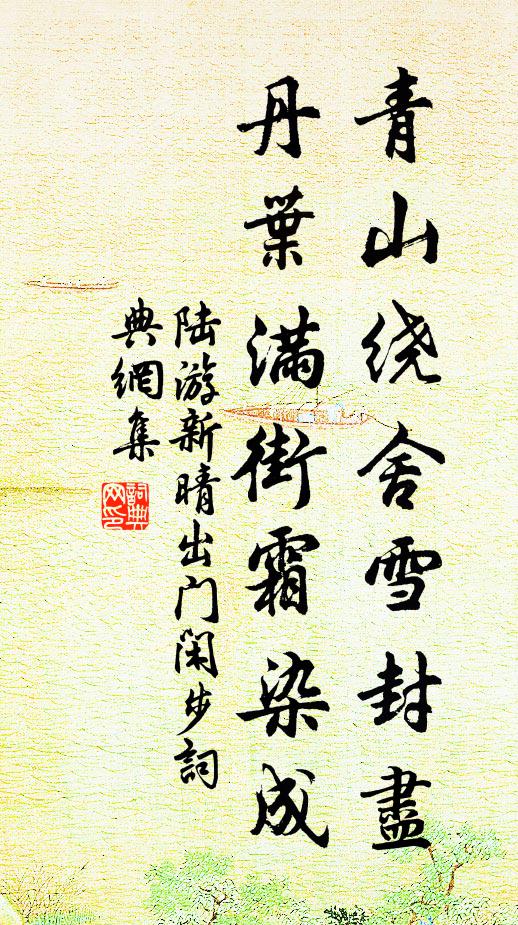 青山绕舍雪封盡
丹葉满街霜染成
陆游新晴出门闲步詞
典網集
詞典网印